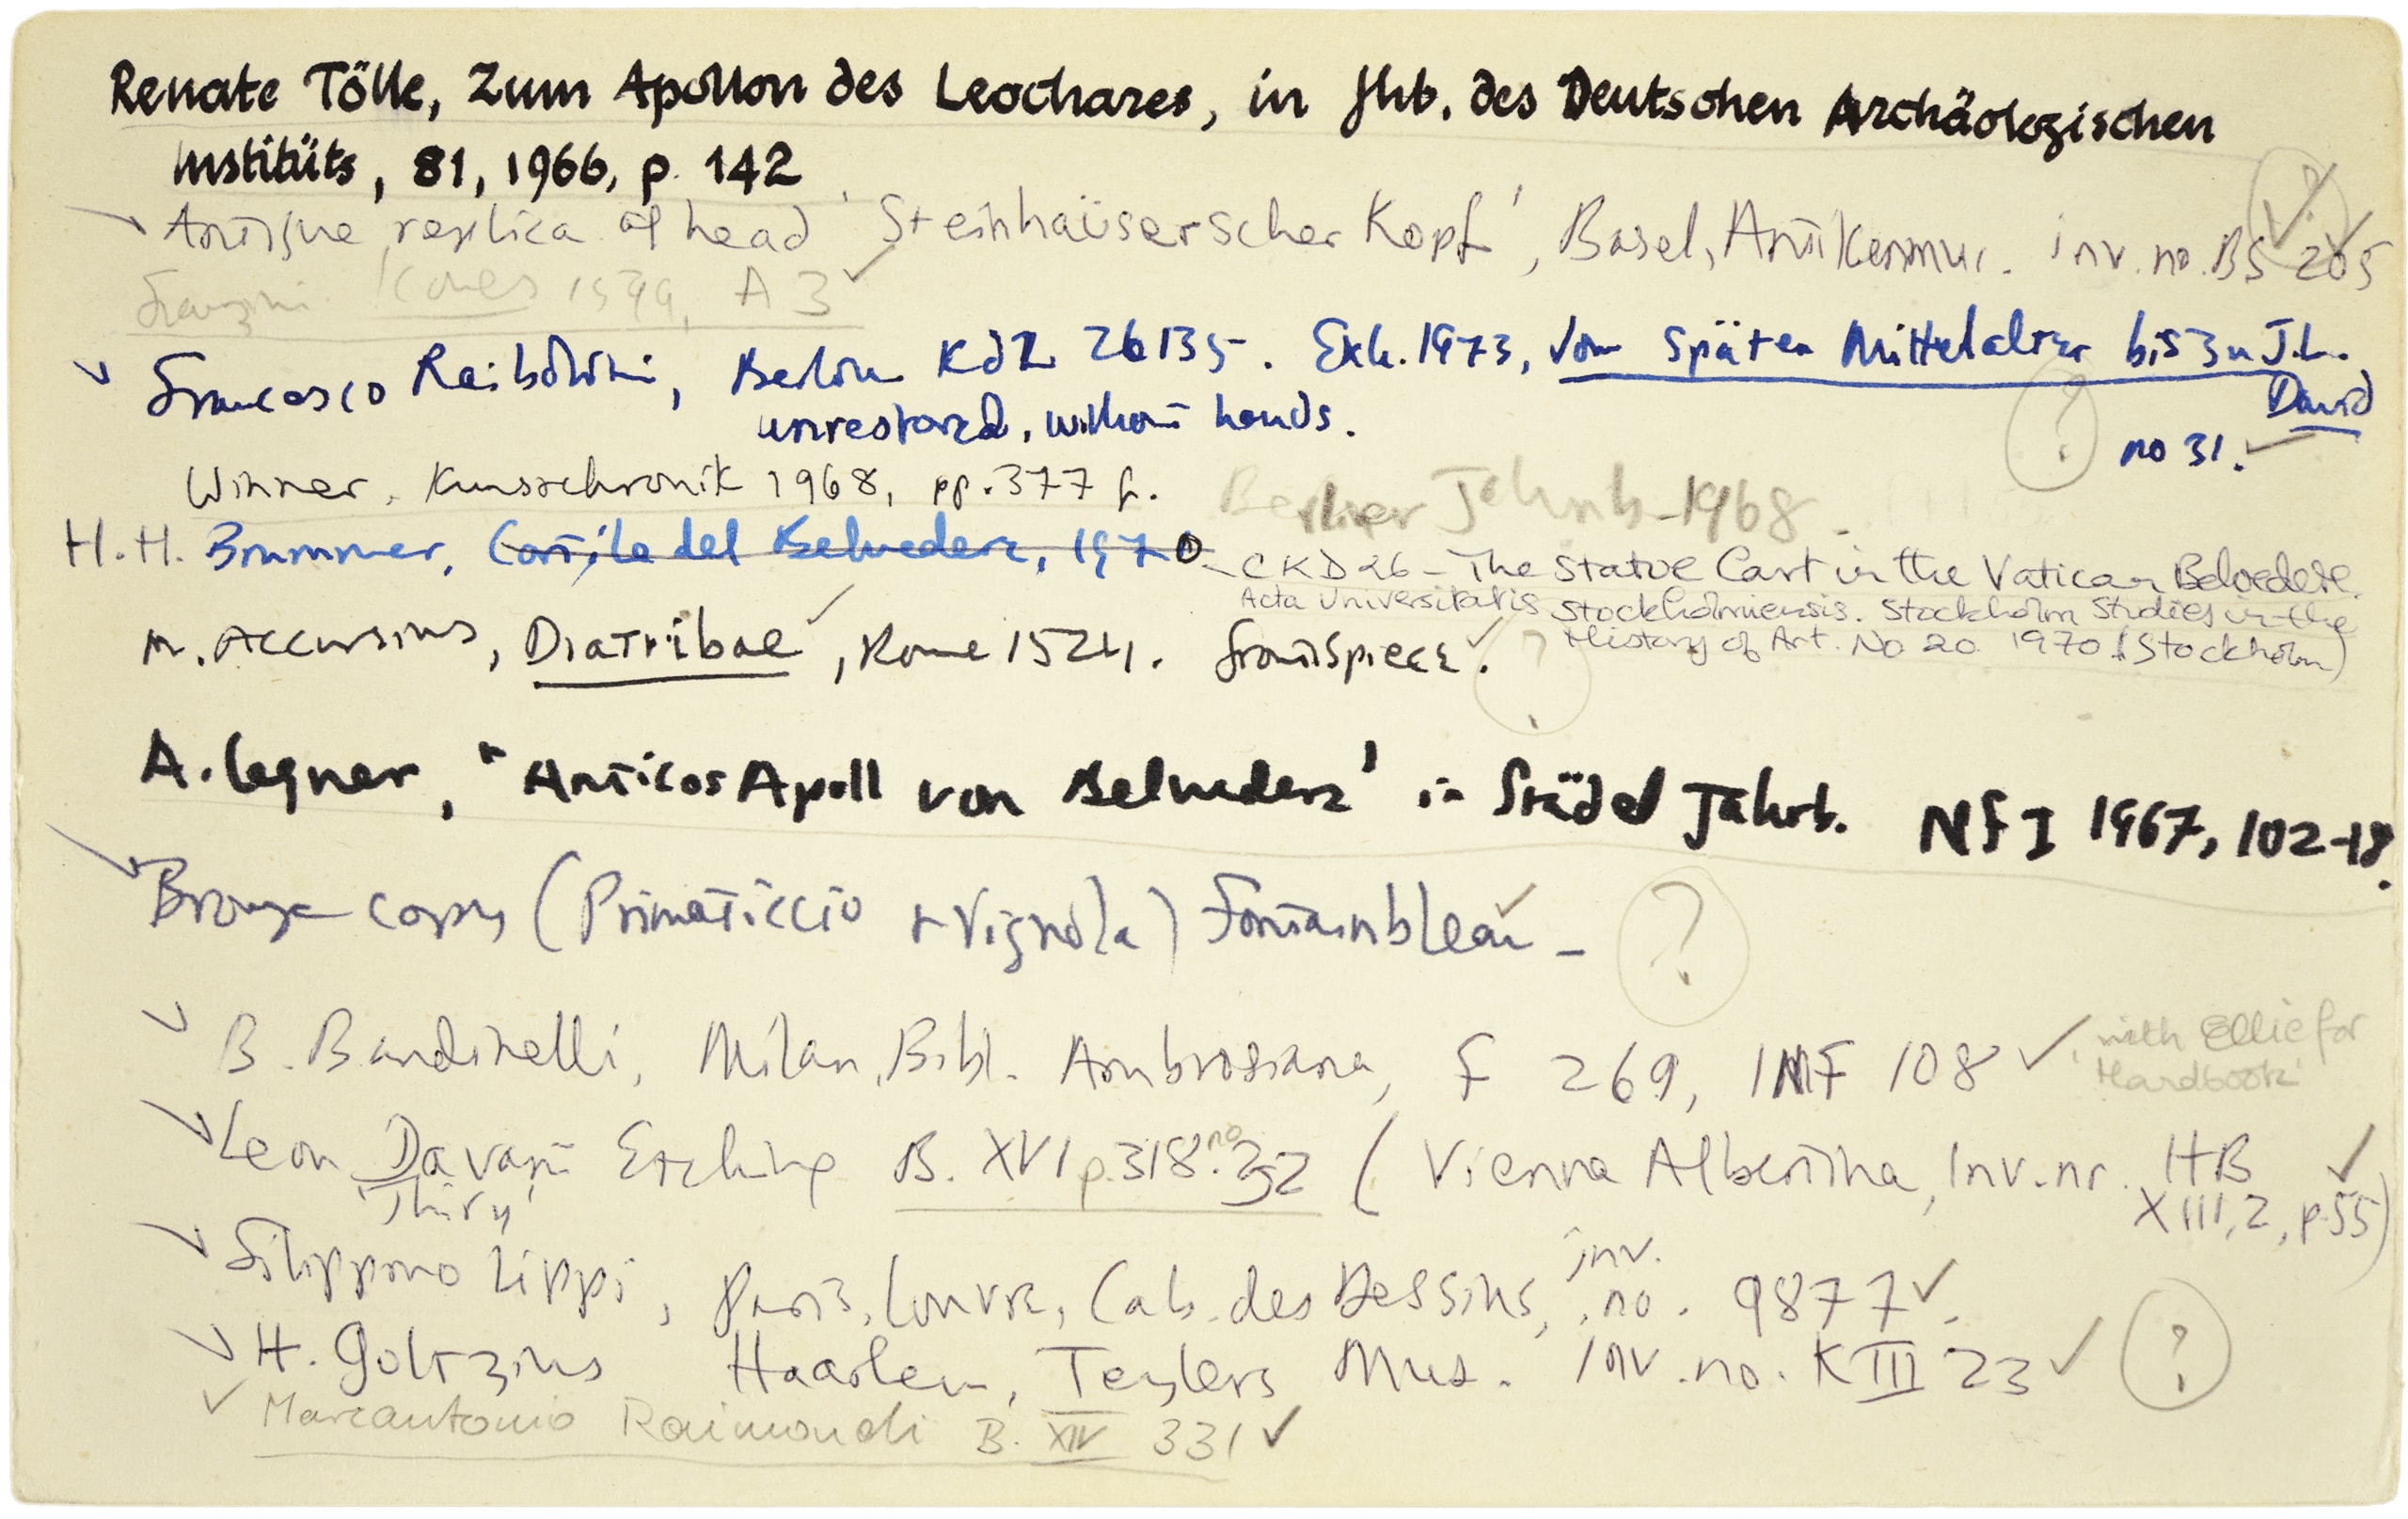 Renate Tölle, Zum Apollon des Leochares, in Jhb. des Deutschen Archäologischen
Instituts, 81, 1966, p. 142
Antique replica of head 'Steinhäuserscher Kopf', Basel, Antikenmus. inv. no. BS 205
1999, A 3
Francesco Raibolini, Berlin KdZ 26135. Exh. 1973, Vom Späten Mittelalter bis zu J.L.
David
unrestored, without hands.
no 31.
?
Winner, Kunstchronik 1968, pp. 377 f. Berliner Jahrb. 1968.
H.H. Brummer, Cortile del Belvedere, 1970
CKD 26 - The Statue Court in the Vatican Belvedere.
Acta Universitatis Stockholmiensis. Stockholm Studies in the
History of Art. No 20 1970 (Stockholm)
M. Accursius, Diatribae, Rome 1524. frontispiece. ?
A. Legner, "Anticos Apoll von Belvedere' in Städel Jahrb. NF I 1967, 102-18.
Bronze copy (Primaticcio + Vignola) Fontainbleau - ?
B. Bandinelli, Milan, Bibl. Ambrosiana, F 269, INF 108 'with Ellie for
Handbook'
Leon Davant Etching B. XVI p. 318 no. 32 (Vienna Albertina, Inv. nr. HB
'Thiry'
XIII, 2, p. 55)
Filippino Lippi, Paris, Louvre, Cab. des Dessins, inv. no. 9877.
H. Goltzius Haarlem, Teylers Mus. Inv. no. K III 23 ?
Marcantonio Raimondi B. XIV 331